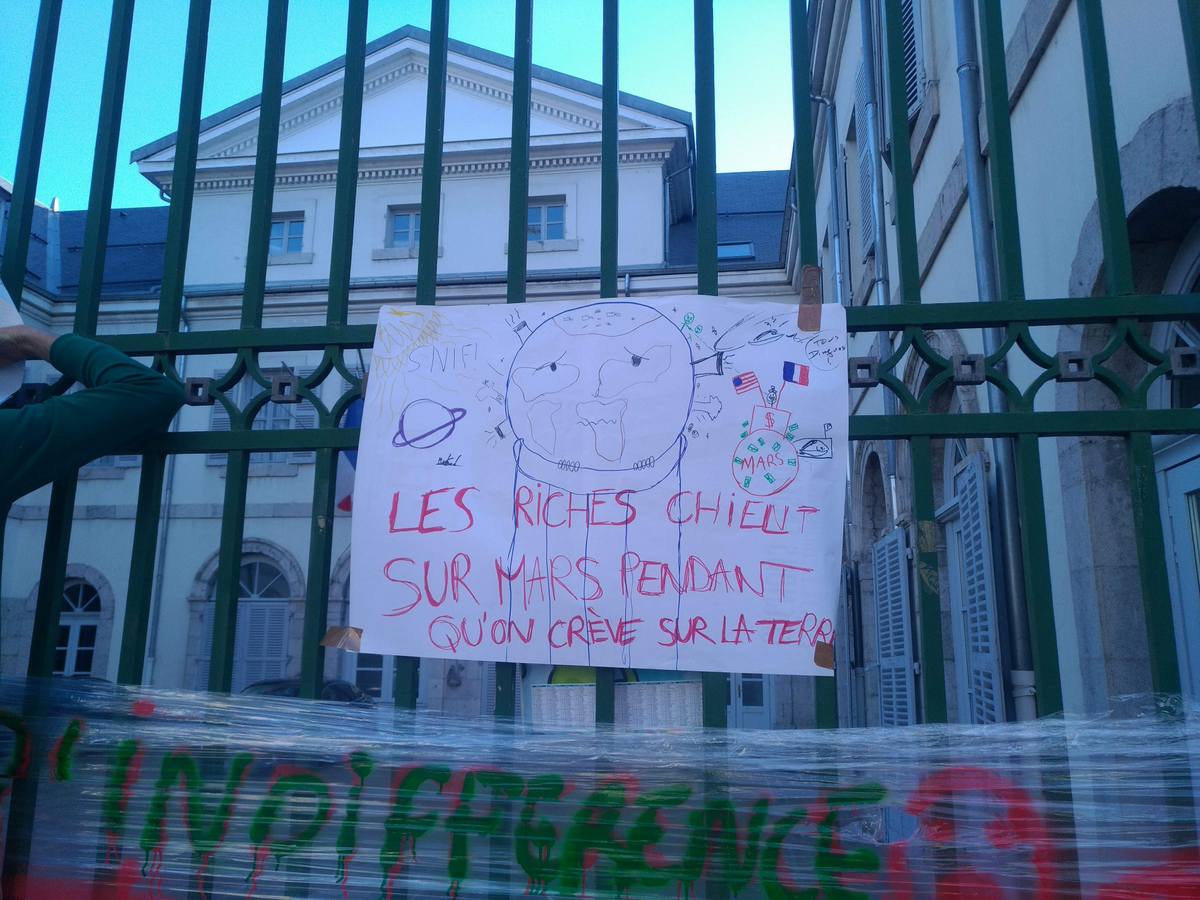 SNIF!
$
MARS
LES RICHES CHIENT
SUR MARS PENDANT
QU'ON CRÈVE SUR LA TERR
'INDIFFERENCE